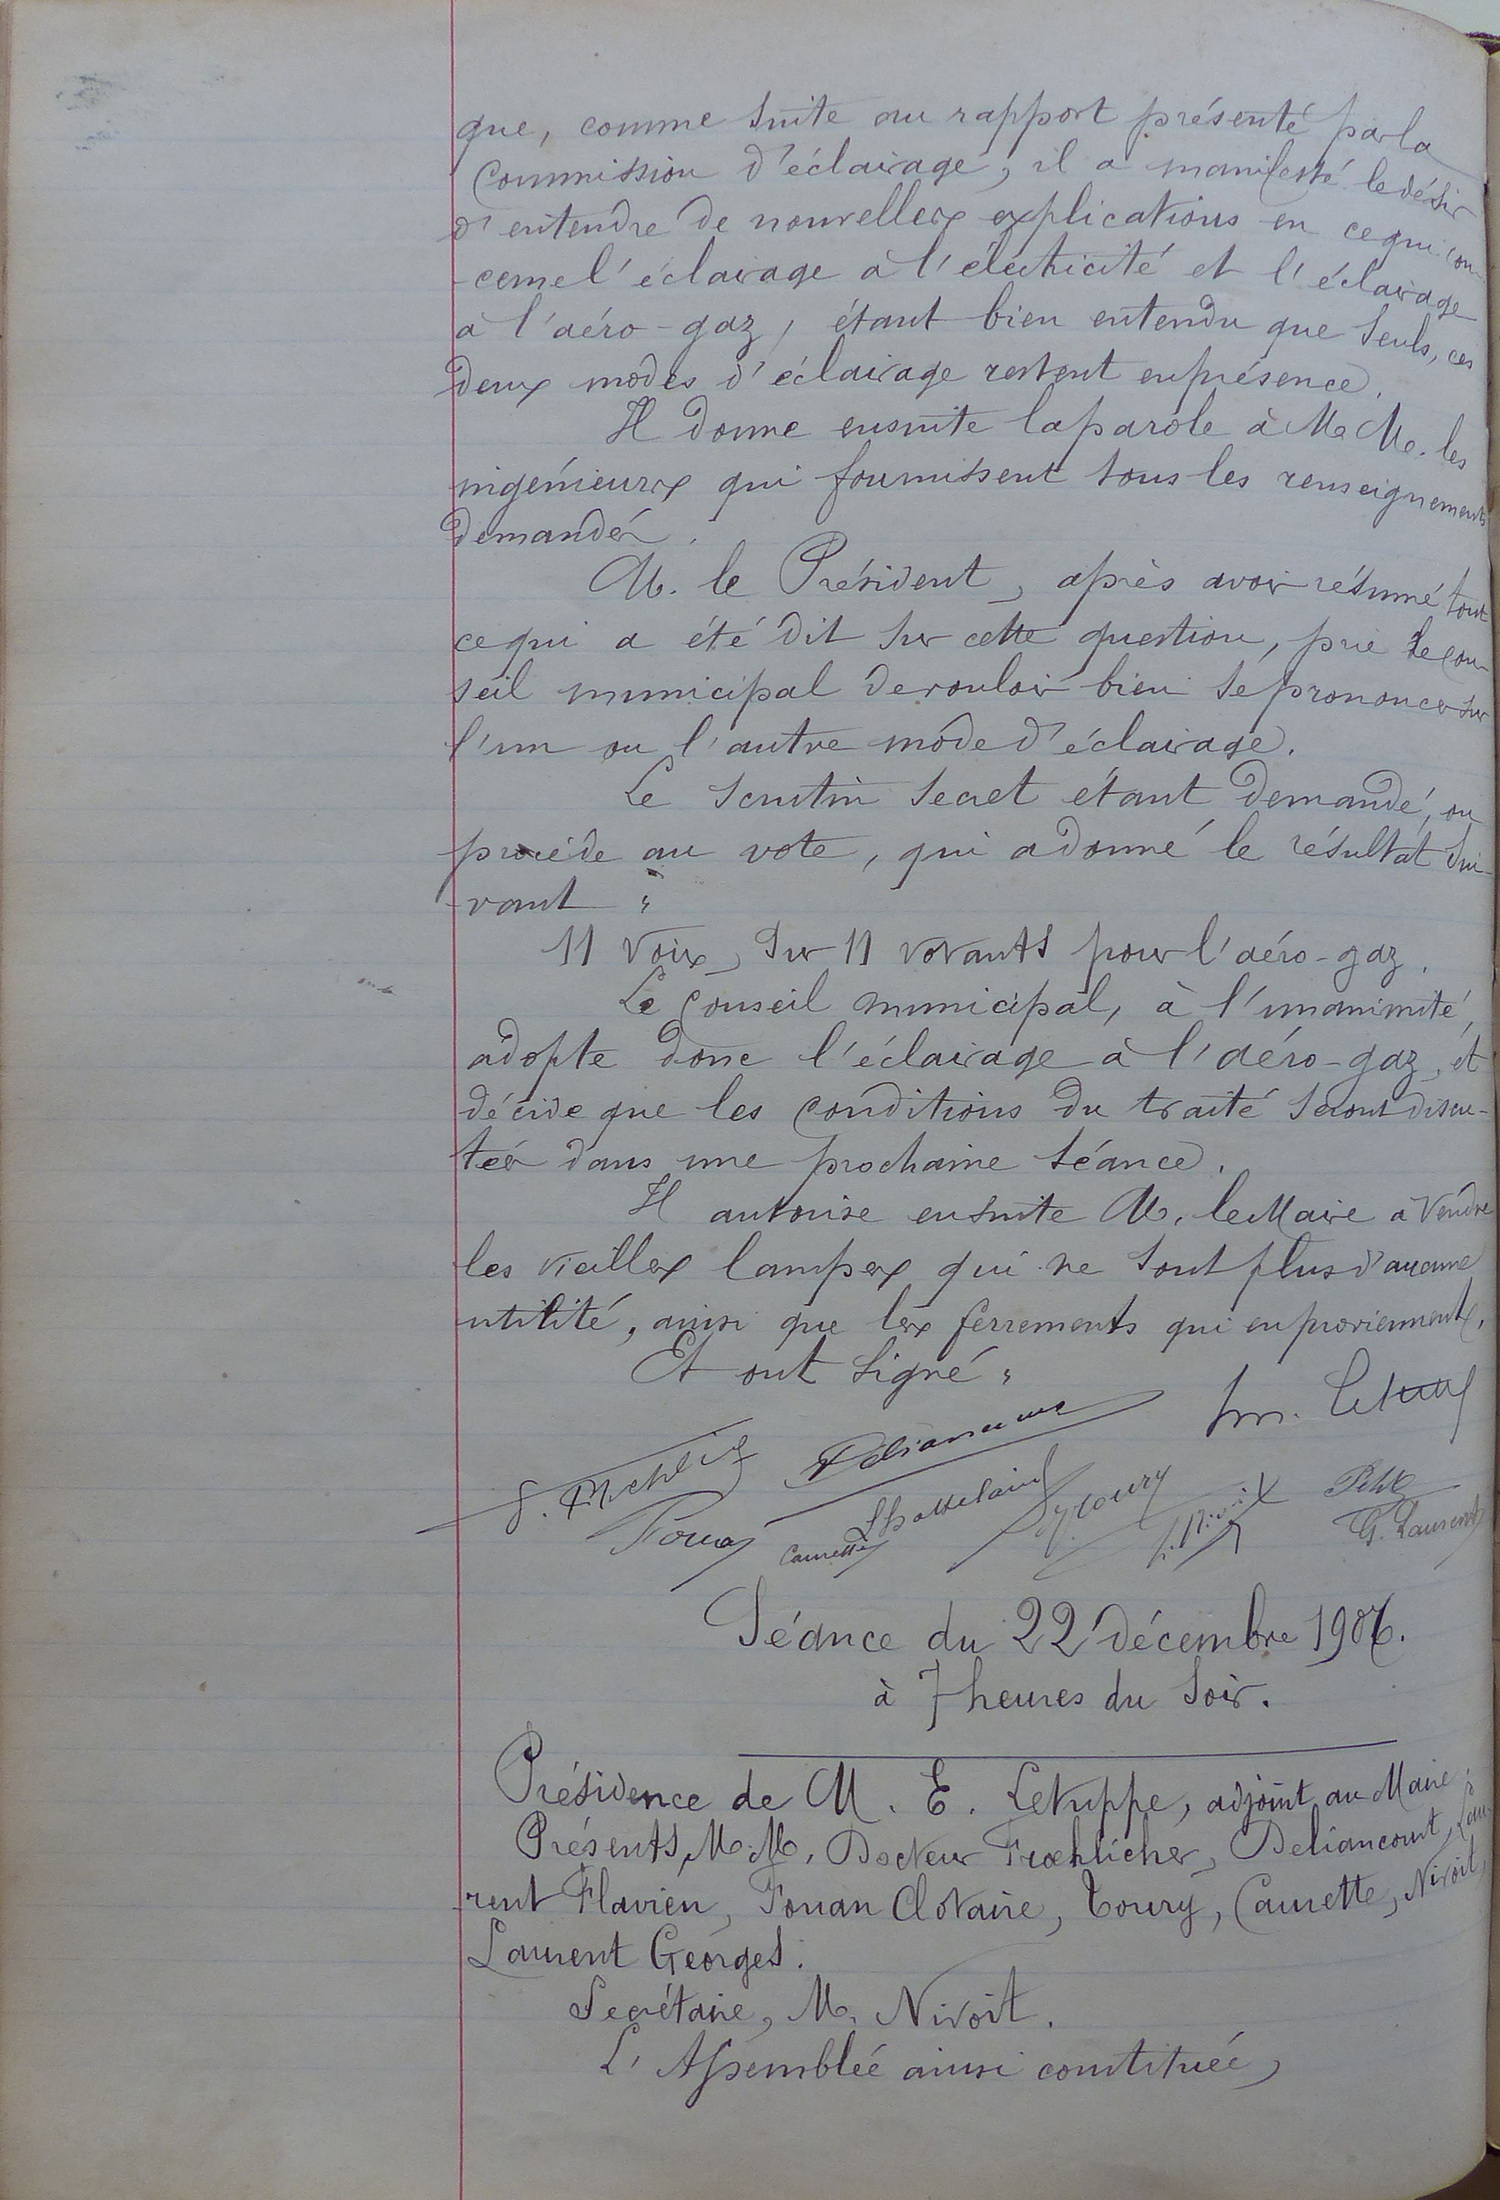 que, comme suite au rapport présenté par la
Commission d'éclairage, il a manifesté le désir
d'entendre de nouvelles explications en ce qui con-
-cerne l'éclairage à l'électricité et l'éclairage
à l'aéro-gaz, étant bien entendu que seuls, ces
deux modes d'éclairage restent en présence.
Il donne ensuite la parole à M.M. les
ingénieurs qui fournissent tous les renseignements
demandés.
M. le Président, après avoir résumé tout
ce qui a été dit sur cette question, prie le con-
seil municipal de vouloir bien se prononcer sur
l'un ou l'autre mode d'éclairage.
Le scrutin secret étant demandé, on
procéde au vote, qui a donné le résultat sui-
-vant :
11 voix, sur 11 votants pour l'aéro-gaz.
Le Conseil municipal, à l'unanimité,
adopte donc l'éclairage à l'aéro-gaz, et
décide que les conditions du traité seront discu-
tées dans une prochaine séance.
Il autorise ensuite M. le Maire à vendre
les vieilles lampes qui ne sont plus d'aucune
utilité, ainsi que les ferrements qui en proviennent.
Et ont signé :
Petit
G. Laurent
Caurette
Séance du 22 décembre 1906.
à 7 heures du soir.
Présidence de M. E. Letuppe, adjoint au Maire ;
Présents, M.M. Docteur Froehlicher, Deliancourt, Lau-
-rent Flavien, Fouan Clotaire, Toury, Caurette, Nivoit,
Laurent Georges.
Secrétaire, M. Nivoit.
L'Assemblée ainsi constituée,